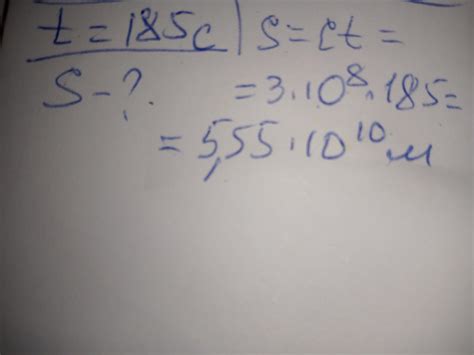 t = 185c | S = ct =
S - ? = 3·10⁸·185 =
= 5,55·10¹⁰ м